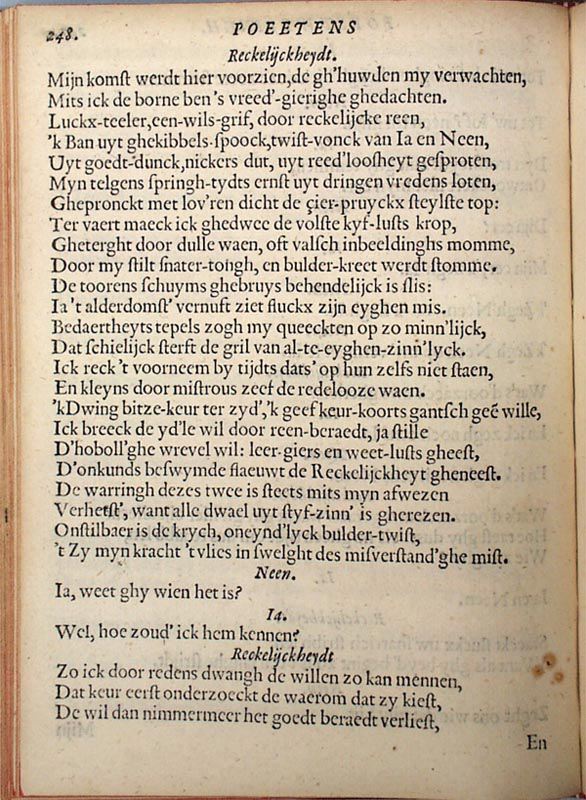 248. POEETENS
Reckelijckheydt.
Mijn komst werdt hier voorzien, de gh'huwden my verwachten,
Mits ick de borne ben 's vreed'-gierighe ghedachten.
Luckx-teeler, een-wils-grif, door reckelijcke reen,
'k Ban uyt ghekibbels-spoock, twist-vonck van Ia en Neen,
Uyt goedt-dunck, nickers dut, uyt reed'loosheyt gesproten,
Myn telgens springh-tydts ernst uyt dringen vredens loten,
Ghepronckt met lov'ren dicht de çier-pruyckx steylste top:
Ter vaert maeck ick ghedwee de volste kyf-lusts krop,
Gheterght door dulle waen, oft valsch inbeeldinghs momme,
Door my stilt snater-tongh, en bulder-kreet werdt stomme.
De toorens schuyms ghebruys behendelijck is slis:
Ia 't alderdomst' vernuft ziet fluckx zijn eyghen mis.
Bedaertheyts tepels zogh my queeckten op zo minn'lijck,
Dat schielijck sterft de gril van al-te-eyghen-zinn'lyck.
Ick reck 't voorneem by tijdts dats' op hun zelfs niet staen,
En kleyns door mistrous zeef de redelooze waen.
'kDwing bitze-keur ter zyd', 'k geef keur-koorts gantsch geē wille,
Ick breeck de yd'le wil door reen-beraedt, ja stille
D'hoboll'ghe wrevel wil: leer-giers en weet-lusts gheest,
D'onkunds beswymde flaeuwt de Reckelijckheyt gheneest.
De warringh dezes twee is steets mits myn afwezen
Verhetst', want alle dwael uyt styf-zinn' is gherezen.
Onstilbaer is de krych, oneynd'lyck bulder-twist,
't Zy myn kracht 't vlies in swelght des misverstand'ghe mist.
Neen.
Ia, weet ghy wien het is?
Ia.
Wel, hoe zoud' ick hem kennen?
Reckelijckheydt
Zo ick door redens dwangh de willen zo kan mennen,
Dat keur eerst onderzoeckt de waerom dat zy kiest,
De wil dan nimmermeer het goedt beraedt verliest,
En